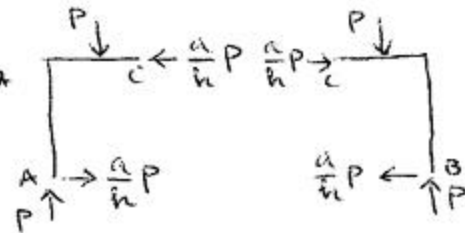 P P
C a/h P a/h P C
A a/h P a/h P B
P P